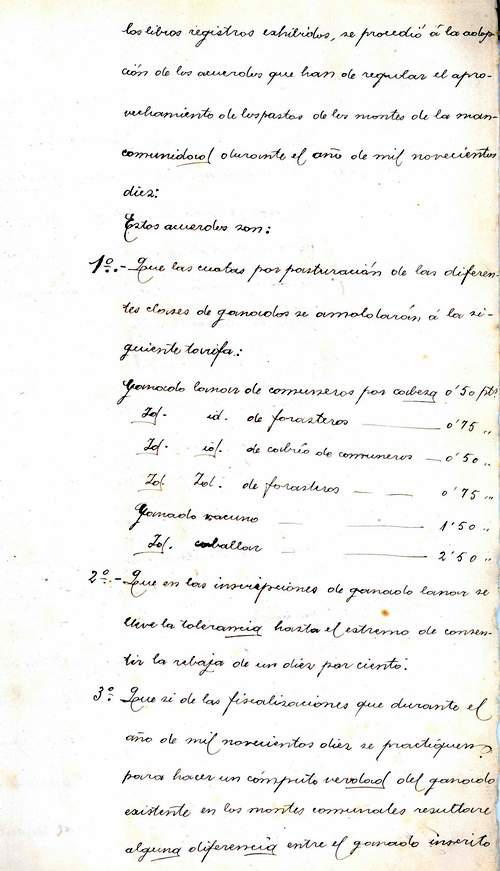 los libros registros exhibidos, se procedió á la adop-
ción de los acuerdos que han de regular el apro-
vechamiento de los pastos de los montes de la man-
comunidad durante el año de mil novecientos
diez:
Estos acuerdos son:
1º.- Que las cuotas por pasturación de las diferen-
tes clases de ganados se amoldarán, á la si-
guiente tarifa.:
Ganado lanar de comuneros por cabeza 0'50 pts
Id. id. de forasteros 0'75 "
Id. id. de cabrío de comuneros 0'50 "
Id. Id. de forasteros 0'75 "
Ganado vacuno 1'50 "
Id. caballar 2'50 "
2º.- Que en las inscripciones de ganado lanar se
lleve la tolerancia hasta el extremo de consen-
tir la rebaja de un diez por ciento.
3º. Que si de las fiscalizaciones que durante el
año de mil novecientos diez se practiquen,
para hacer un cómputo verdad del ganado
existente en los montes comunales resultare
alguna diferencia entre el ganado inscrito